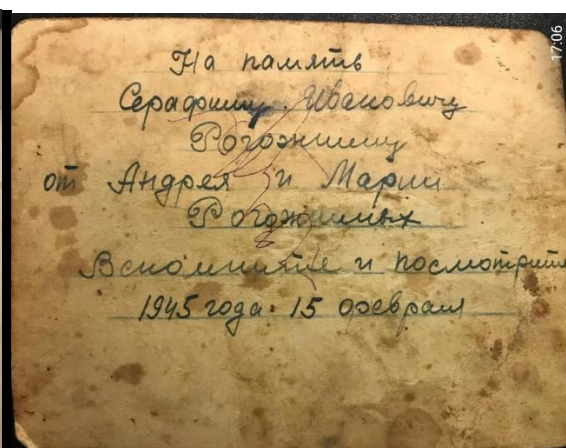 На память
Серафиму Ивановичу
Рогожшину
от Андрея и Марии
Рогожиных
Вспомните и посмотрите
1945 года. 15 февраля
17:06